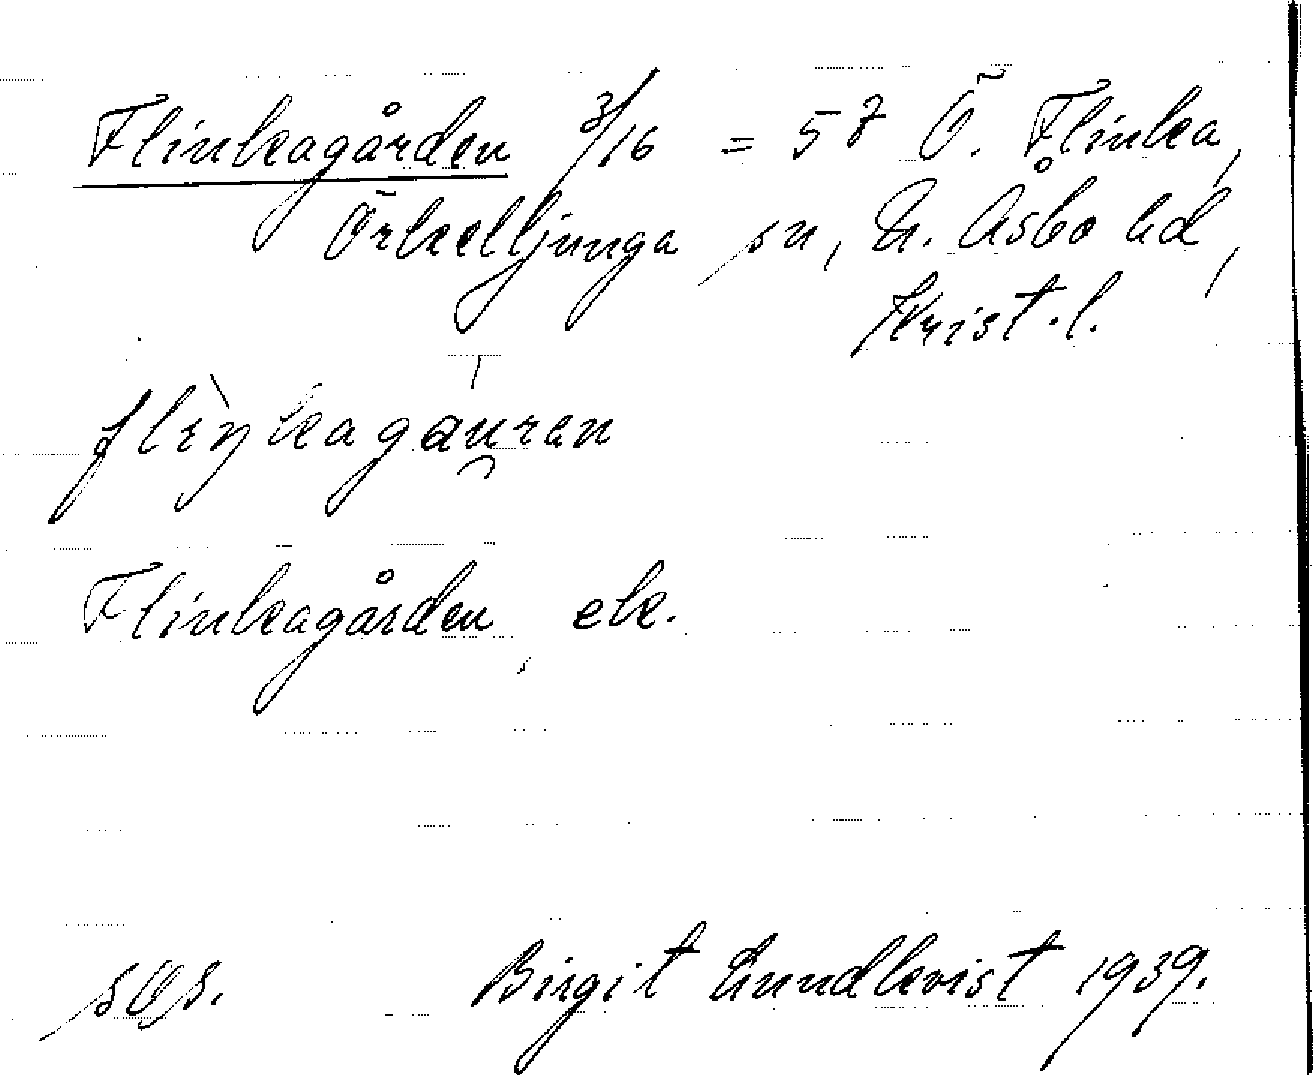 Flinkagården 3/16 = 57 Ö. Flinka,
Örkelljunga sn, N. Åsbo hd,
Krist. l.
flìŋkagau̯ran
Flinkagården, ek.
sgs. Birgit Lundkvist 1939.